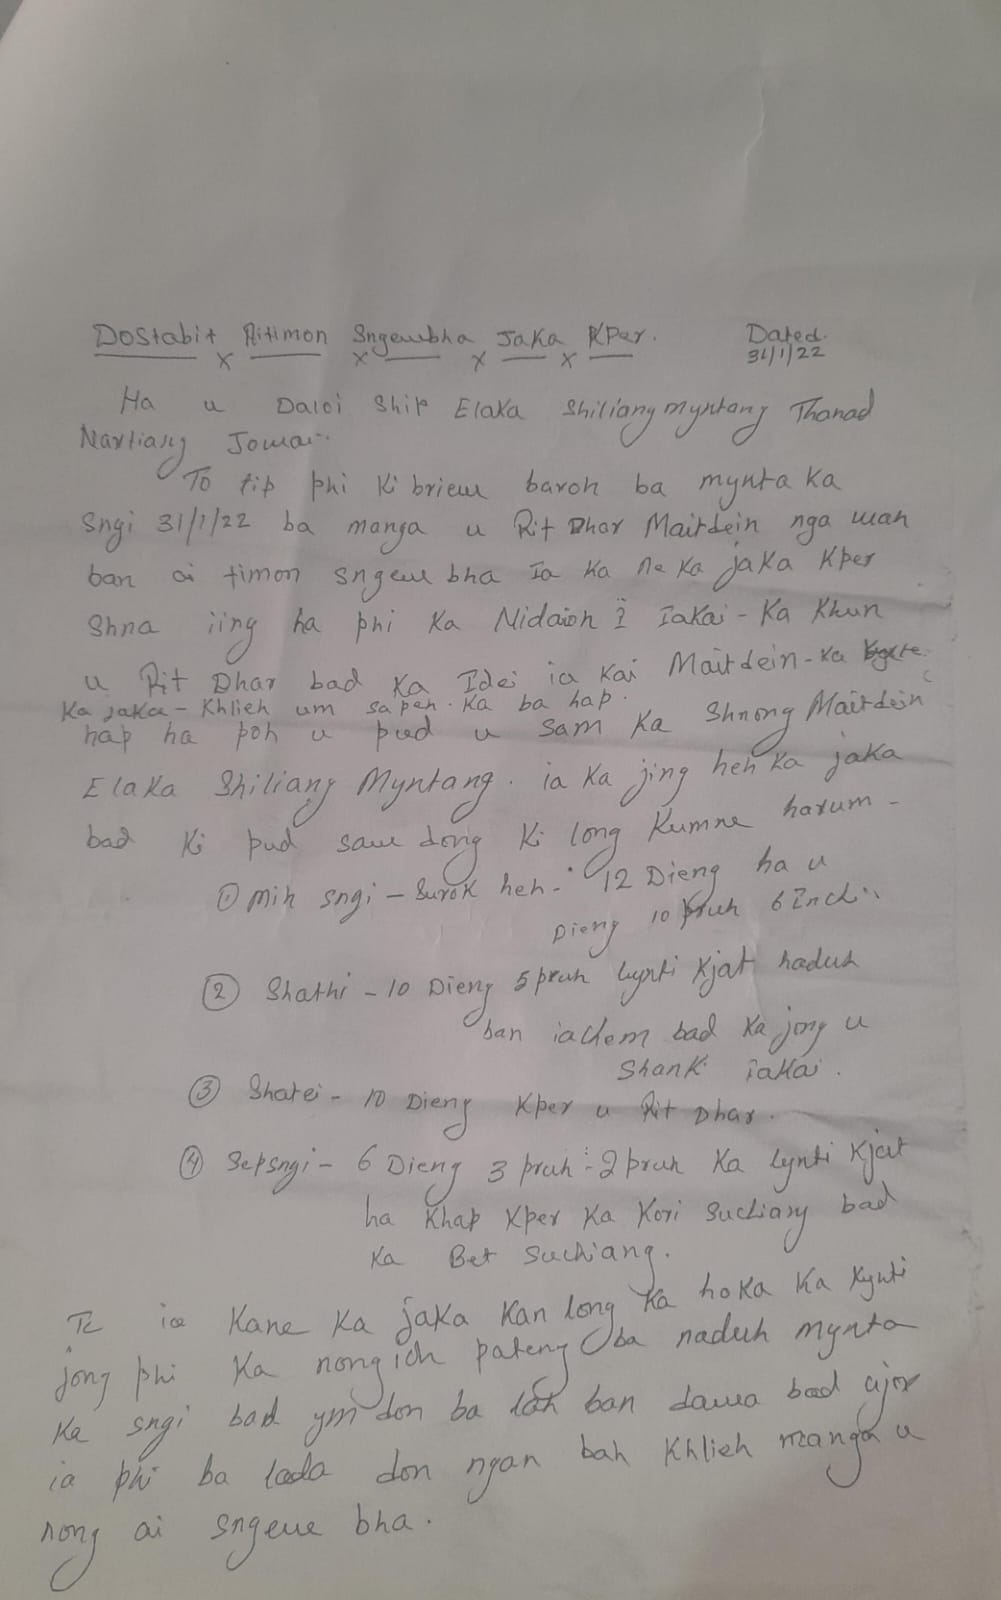 Dostabit Aitimon Sngewbha Jaka Kper. Dated.
x x x x 31/1/22
Ha u Daloi Ship Elaka Shiliangmyntang Thanad
Nartiang Jowai.
To tip phi Ki briew baroh ba mynta ka
Sngi 31/1/22 ba manga u Rit Dhar Mairdein nga wan
ban ai timon sngew bha Ia Ka ne Ka jaKa Kper
Shna iing ha phi Ka Nidaioh I Iakai - Ka Khun
u Rit Dhar bad Ka Idei ia Kai Mairdein - Ka
Ka jaKa - Khlieh um sapeh. Ka ba hap.
hap ha poh u pud u Sam Ka Shnong Mairdein
Elaka Shiliang Myntang. ia Ka jing heh Ka jaka
bad Ki pud saw dong Ki long Kumne harum -
① mih sngi - Surok heh - 12 Dieng ha u
Dieng 10 pruh 6 Inch
② Shathi - 10 Dieng 5 pruh lynti Kjat haduh
ban iachem bad Ka jong u
Shanki iaKai.
③ Shatei - 10 Dieng Kper u Rit Dhar.
④ Sepsngi - 6 Dieng 3 pruh - 2 pruh Ka lynti Kjat
ha Khap Kper Ka Kori Suchiang bad
Ka Bet Suchiang.
Te ia Kane Ka jaka Kan long Ka hoKa Ka Kynti
jong phi Ka nongioh pateng ba naduh mynta
Ka sngi bad ym don ba lah ban dawa bad ajor
ia phi ba lada don ngan bah Khlieh manga u
nong ai sngew bha.